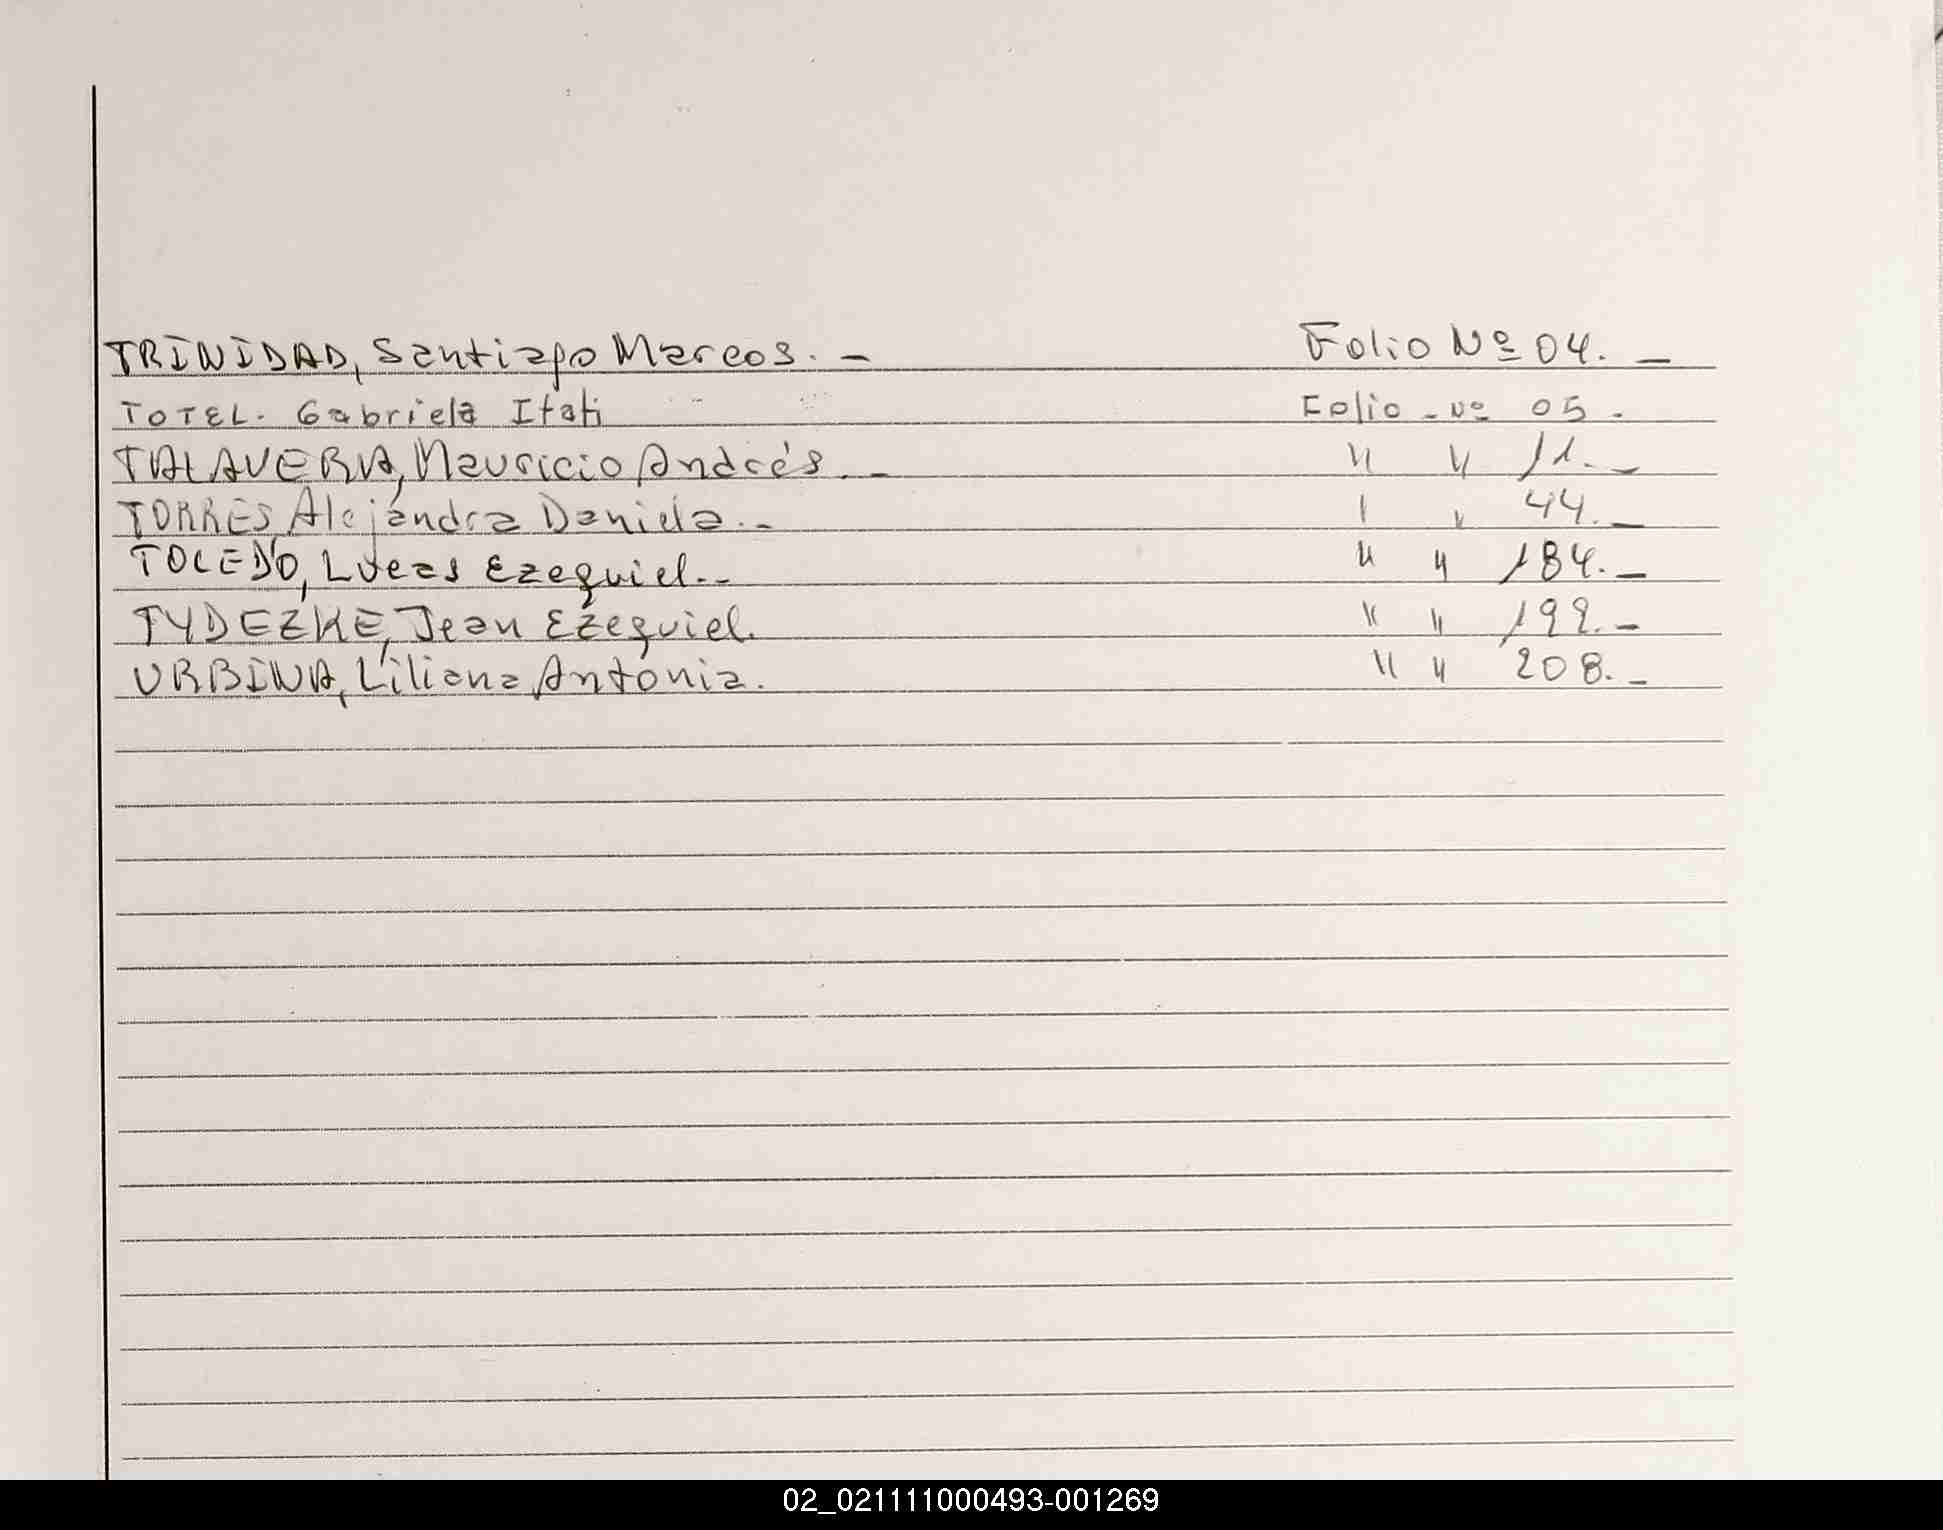 TRINIDAD, Santiago Marcos. — Folio Nº 04. —
TOTEL. Gabriela Itati Folio - Nº 05 .
TALAVERA, Mauricio Andrés. — " " 11. —
TORRES, Alejandra Daniela. - " " 44. —
TOLEDO, Lucas Ezequiel. - " " 184. —
TYDEZKE, Jean Ezequiel. " " 199. —
URBINA, Liliana Antonia. " " 208. —
02_021111000493-001269